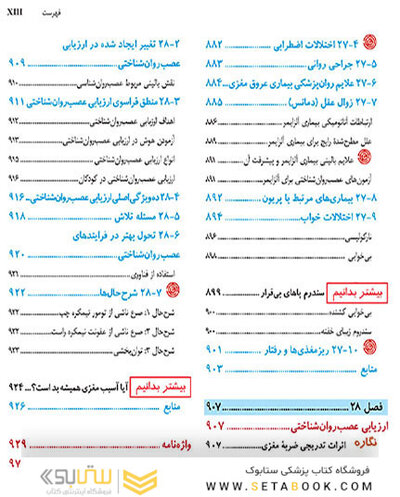 فهرست
XIII
۲۷-۴ اختلالات اضطرابی ........ ۸۸۲
۲۷-۵ جراحی روانی ........ ۸۸۳
۲۷-۶ علایم روان‌پزشکی بیماری عروق مغزی... ۸۸۴
۲۷-۷ زوال عقل (دمانس) ........ ۸۸۵
ارتباطات آناتومیکی بیماری آلزایمر ........
علل مطرح‌شدهٔ رایج برای بیماری آلزایمر ........ ۸۸۹
علایم بالینی بیماری آلزایمر و پیشرفت آن ........ ۸۹۱
آزمون‌های عصب‌روان‌شناختی برای آلزایمر ........
۲۷-۸ بیماری‌های مرتبط با پریون ........ ۸۹۲
۲۷-۹ اختلالات خواب ........ ۸۹۴
نارکولپسی ........ ۸۹۶
بی‌خوابی ........ ۸۹۸
بیشتر بدانیم سندرم پاهای بی‌قرار ........ ۸۹۹
بی‌خوابی کشنده ........ ۹۰۰
سندروم زیبای خفته ........ ۹۰۰
۲۷-۱۰ ریزمغذی‌ها و رفتار ........ ۹۰۱
منابع ........ ۹۰۳
فصل ۲۸ ........ ۹۰۷
ارزیابی عصب‌روان‌شناختی ........ ۹۰۷
نگاره اثرات تدریجی ضربهٔ مغزی ........ ۹۰۷
۲۸-۲ تغییر ایجاد شده در ارزیابی
عصب‌روان‌شناختی ........ ۹۰۹
نقش بالینی مربوط عصب‌روان‌شناسی ........ ۹۱۰
۲۸-۳ منطق فراسوی ارزیابی عصب‌روان‌شناختی ۹۱۱
اهداف ارزیابی عصب‌روان‌شناختی ........ ۹۱۲
آزمودن هوش در ارزیابی عصب‌روان‌شناختی ........ ۹۱۳
انواع ارزیابی عصب‌روان‌شناختی ........ ۹۱۵
ارزیابی عصب‌روان‌شناختی در کودکان ........ ۹۱۶
۲۸-۴ ده ویژگی اصلی ارزیابی عصب‌روان‌شناختی... ۹۱۶
۲۸-۵ مسئله تلاش ........ ۹۱۸
۲۸-۶ تحول بهتر در فرایندهای
عصب‌روان‌شناختی ........ ۹۲۰
استفاده از فناوری ........ ۹۲۱
۲۸-۷ شرح‌حال‌ها ........ ۹۲۲
شرح‌حال ۱: صرع ناشی از تومور نیمکره چپ ........ ۹۲۲
شرح‌حال ۲: صرع ناشی از عفونت نیمکره راست ........ ۹۲۲
شرح‌حال ۳: توان‌بخشی ........ ۹۲۳
بیشتر بدانیم آیا آسیب مغزی همیشه بد است؟... ۹۲۴
منابع ........ ۹۲۶
واژه‌نامه ........ ۹۲۹
۹۷
فروشگاه کتاب پزشکی ستابوک
WWW.SETABOOK.COM
ستابوک
فروشگاه اینترنتی کتاب